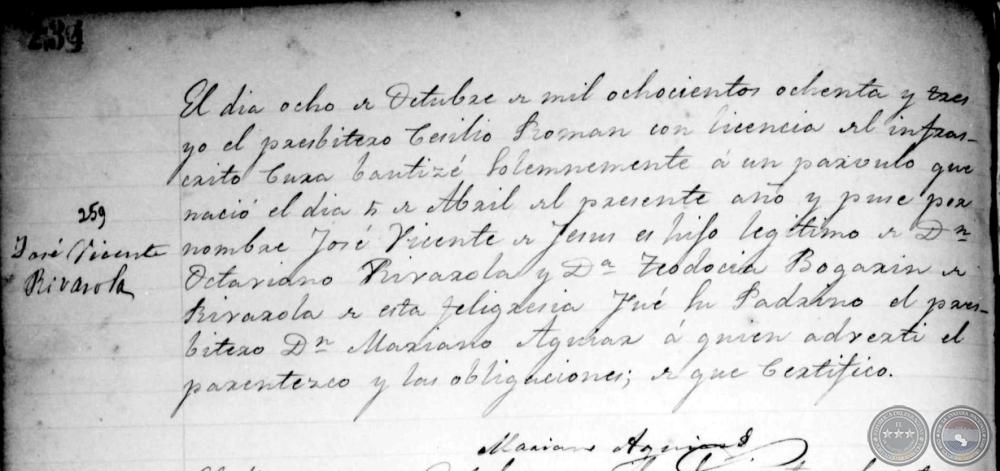 234
El dia ocho de Octubre de mil ochocientos ochenta y tres
yo el presbitero Cecilio Roman con licencia del infras-
crito Cura bautizé Solemnemente á un parvulo que
nació el dia 5 de Abril del presente año y puse por
259
nombre José Vicente de Jesus es hijo legitimo de Dn
José Vicente
Rivarola
Octaviano Rivarola y Da Teodocia Bogarin de
Rivarola de esta feligresia Fué su Padrino el pres-
bitero Dn Mariano Aguiar á quien adverti el
parentezco y las obligaciones; de que Certifico.
Mariano Aguiar